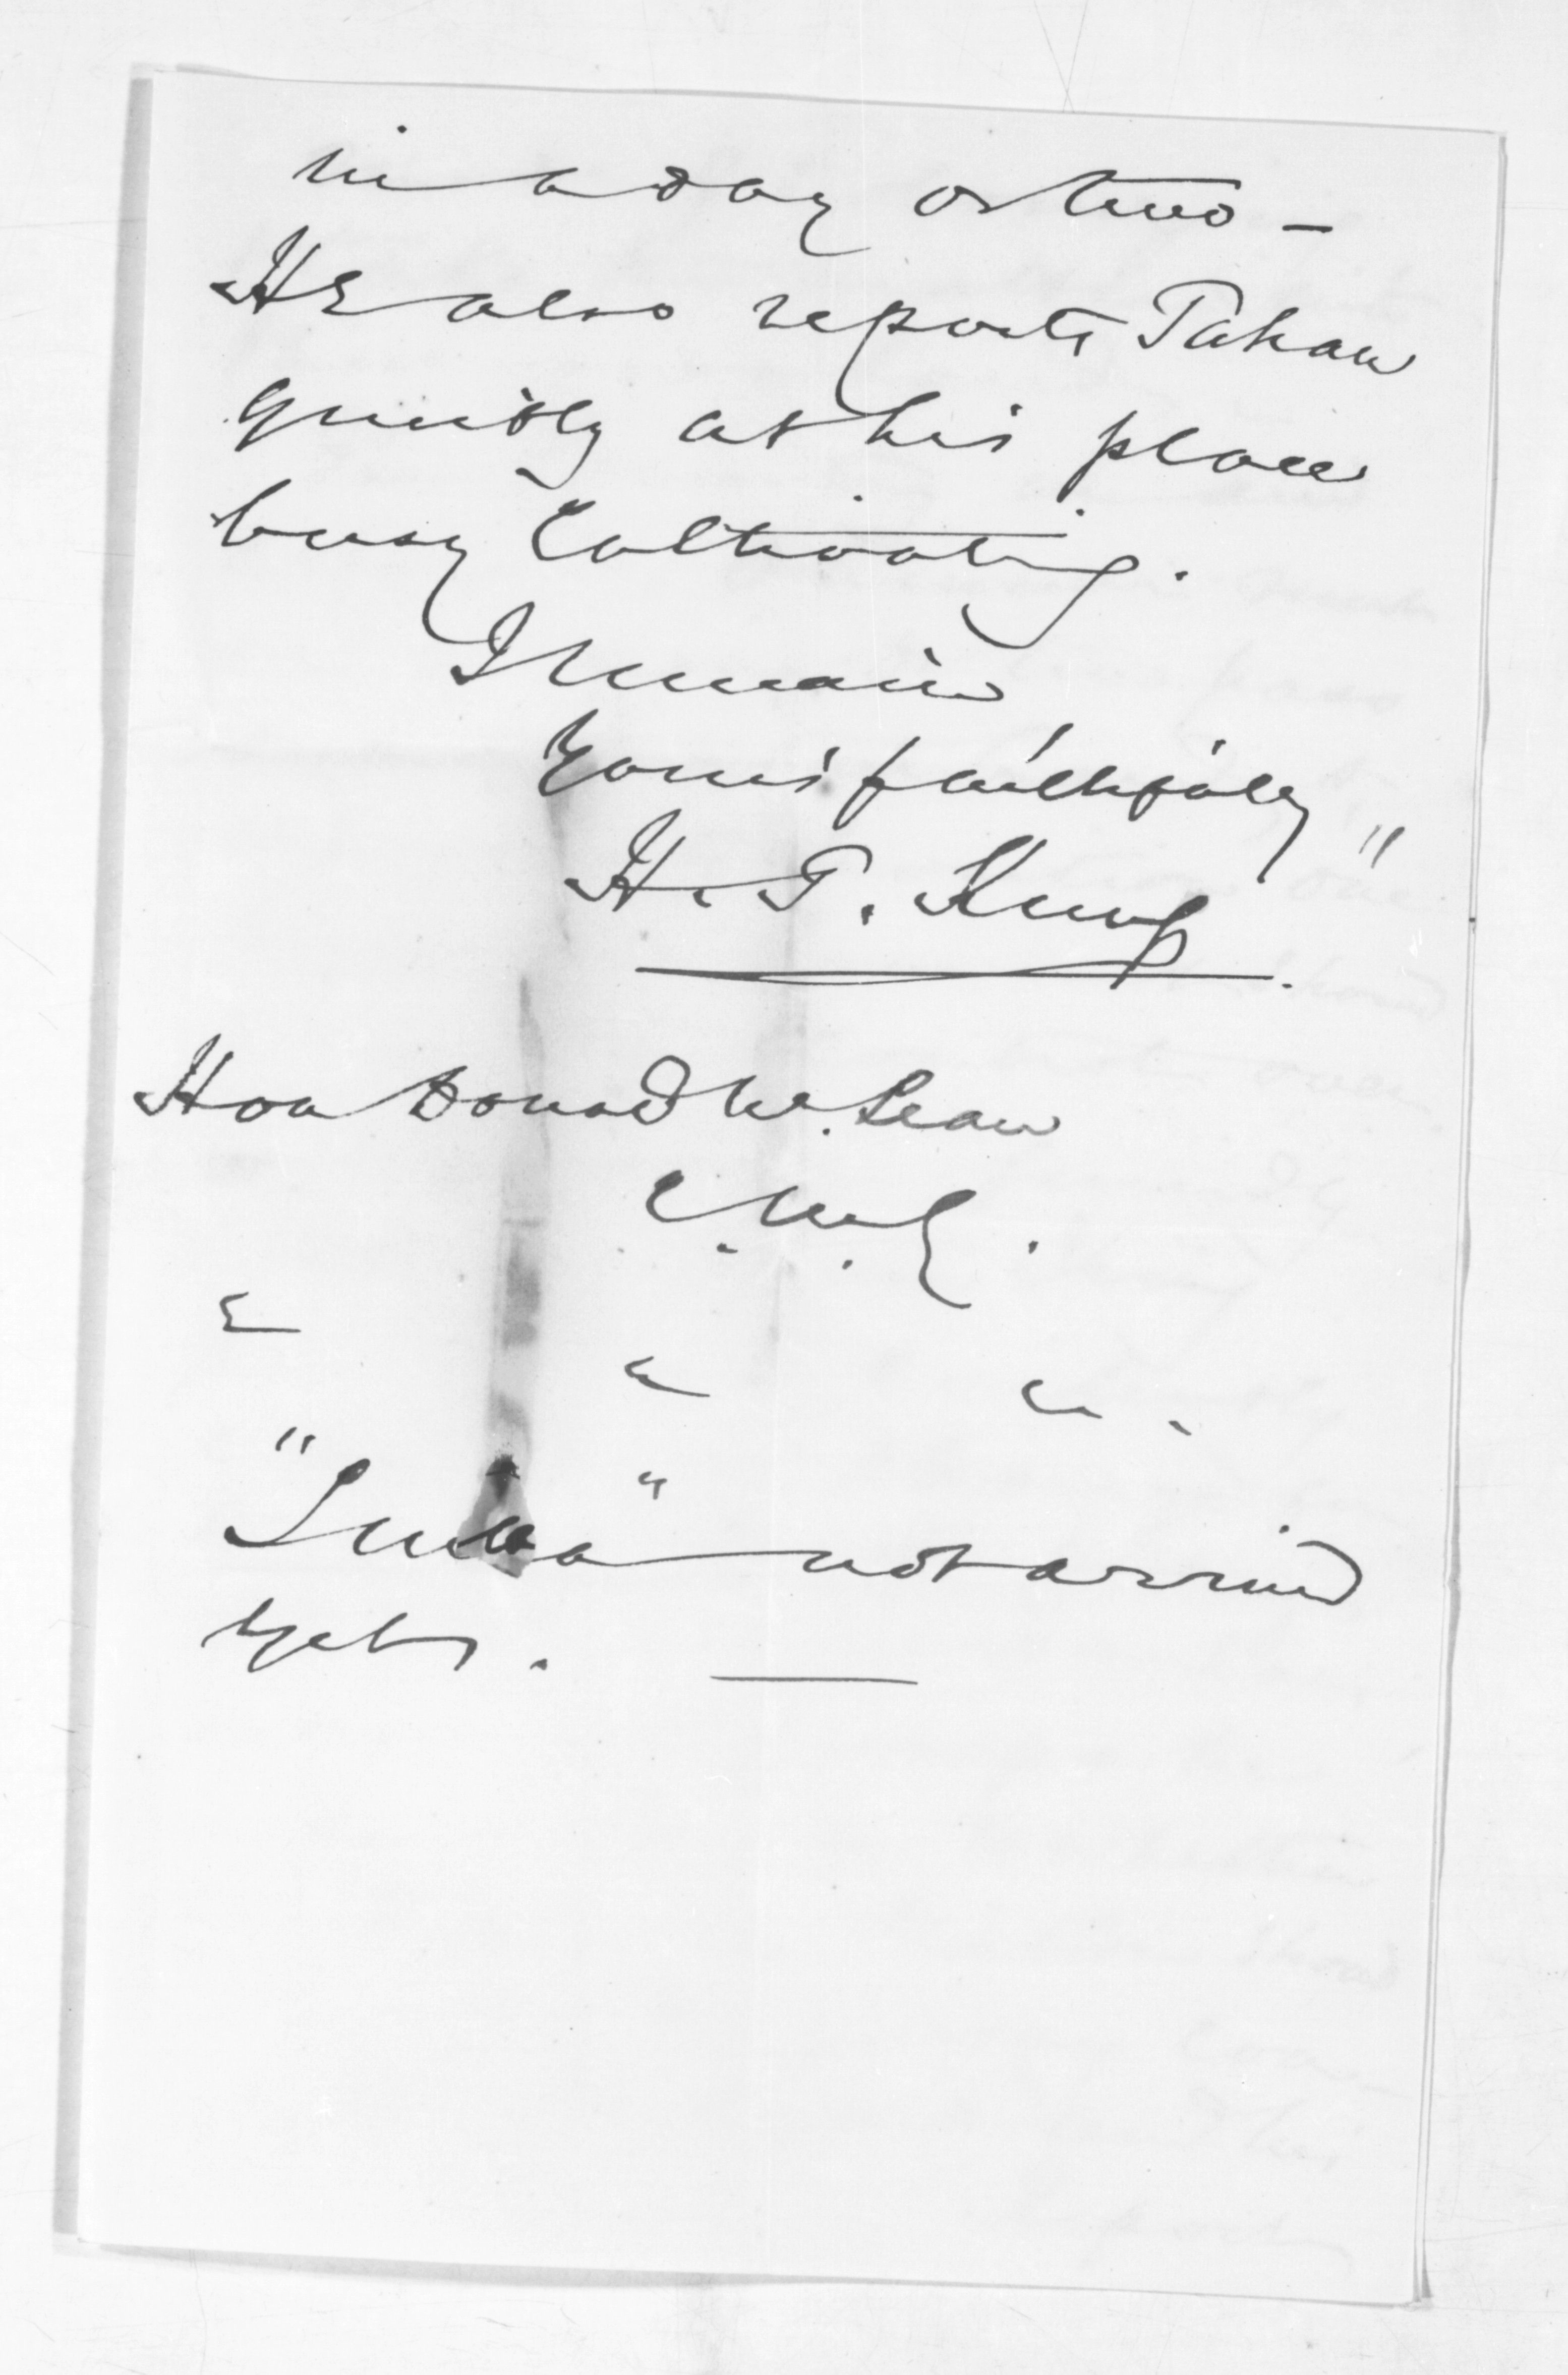 in a day or two —
He also reports Pahau
quietly at his place
busy Cultivating.
I remain
Yours faithfully
H. T. Kemp
Hon Donald McLean
C.M.G.
" " "
"Luna" not arrived
yet.